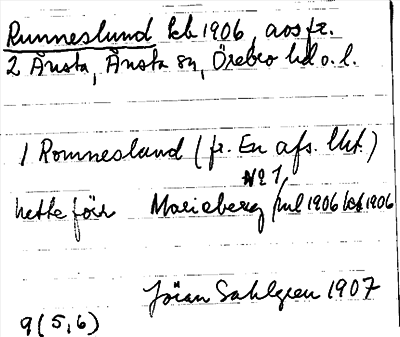 Runneslund kb 1906, avs fr.
2 Ånsta, Ånsta sn, Örebro hd o. l.
1 Romnesland (fr. En afs. lht.)
№ 1,
hette förr Marieberg jml 1906 kb 1906
Jöran Sahlgren 1907
9 (5, 6)